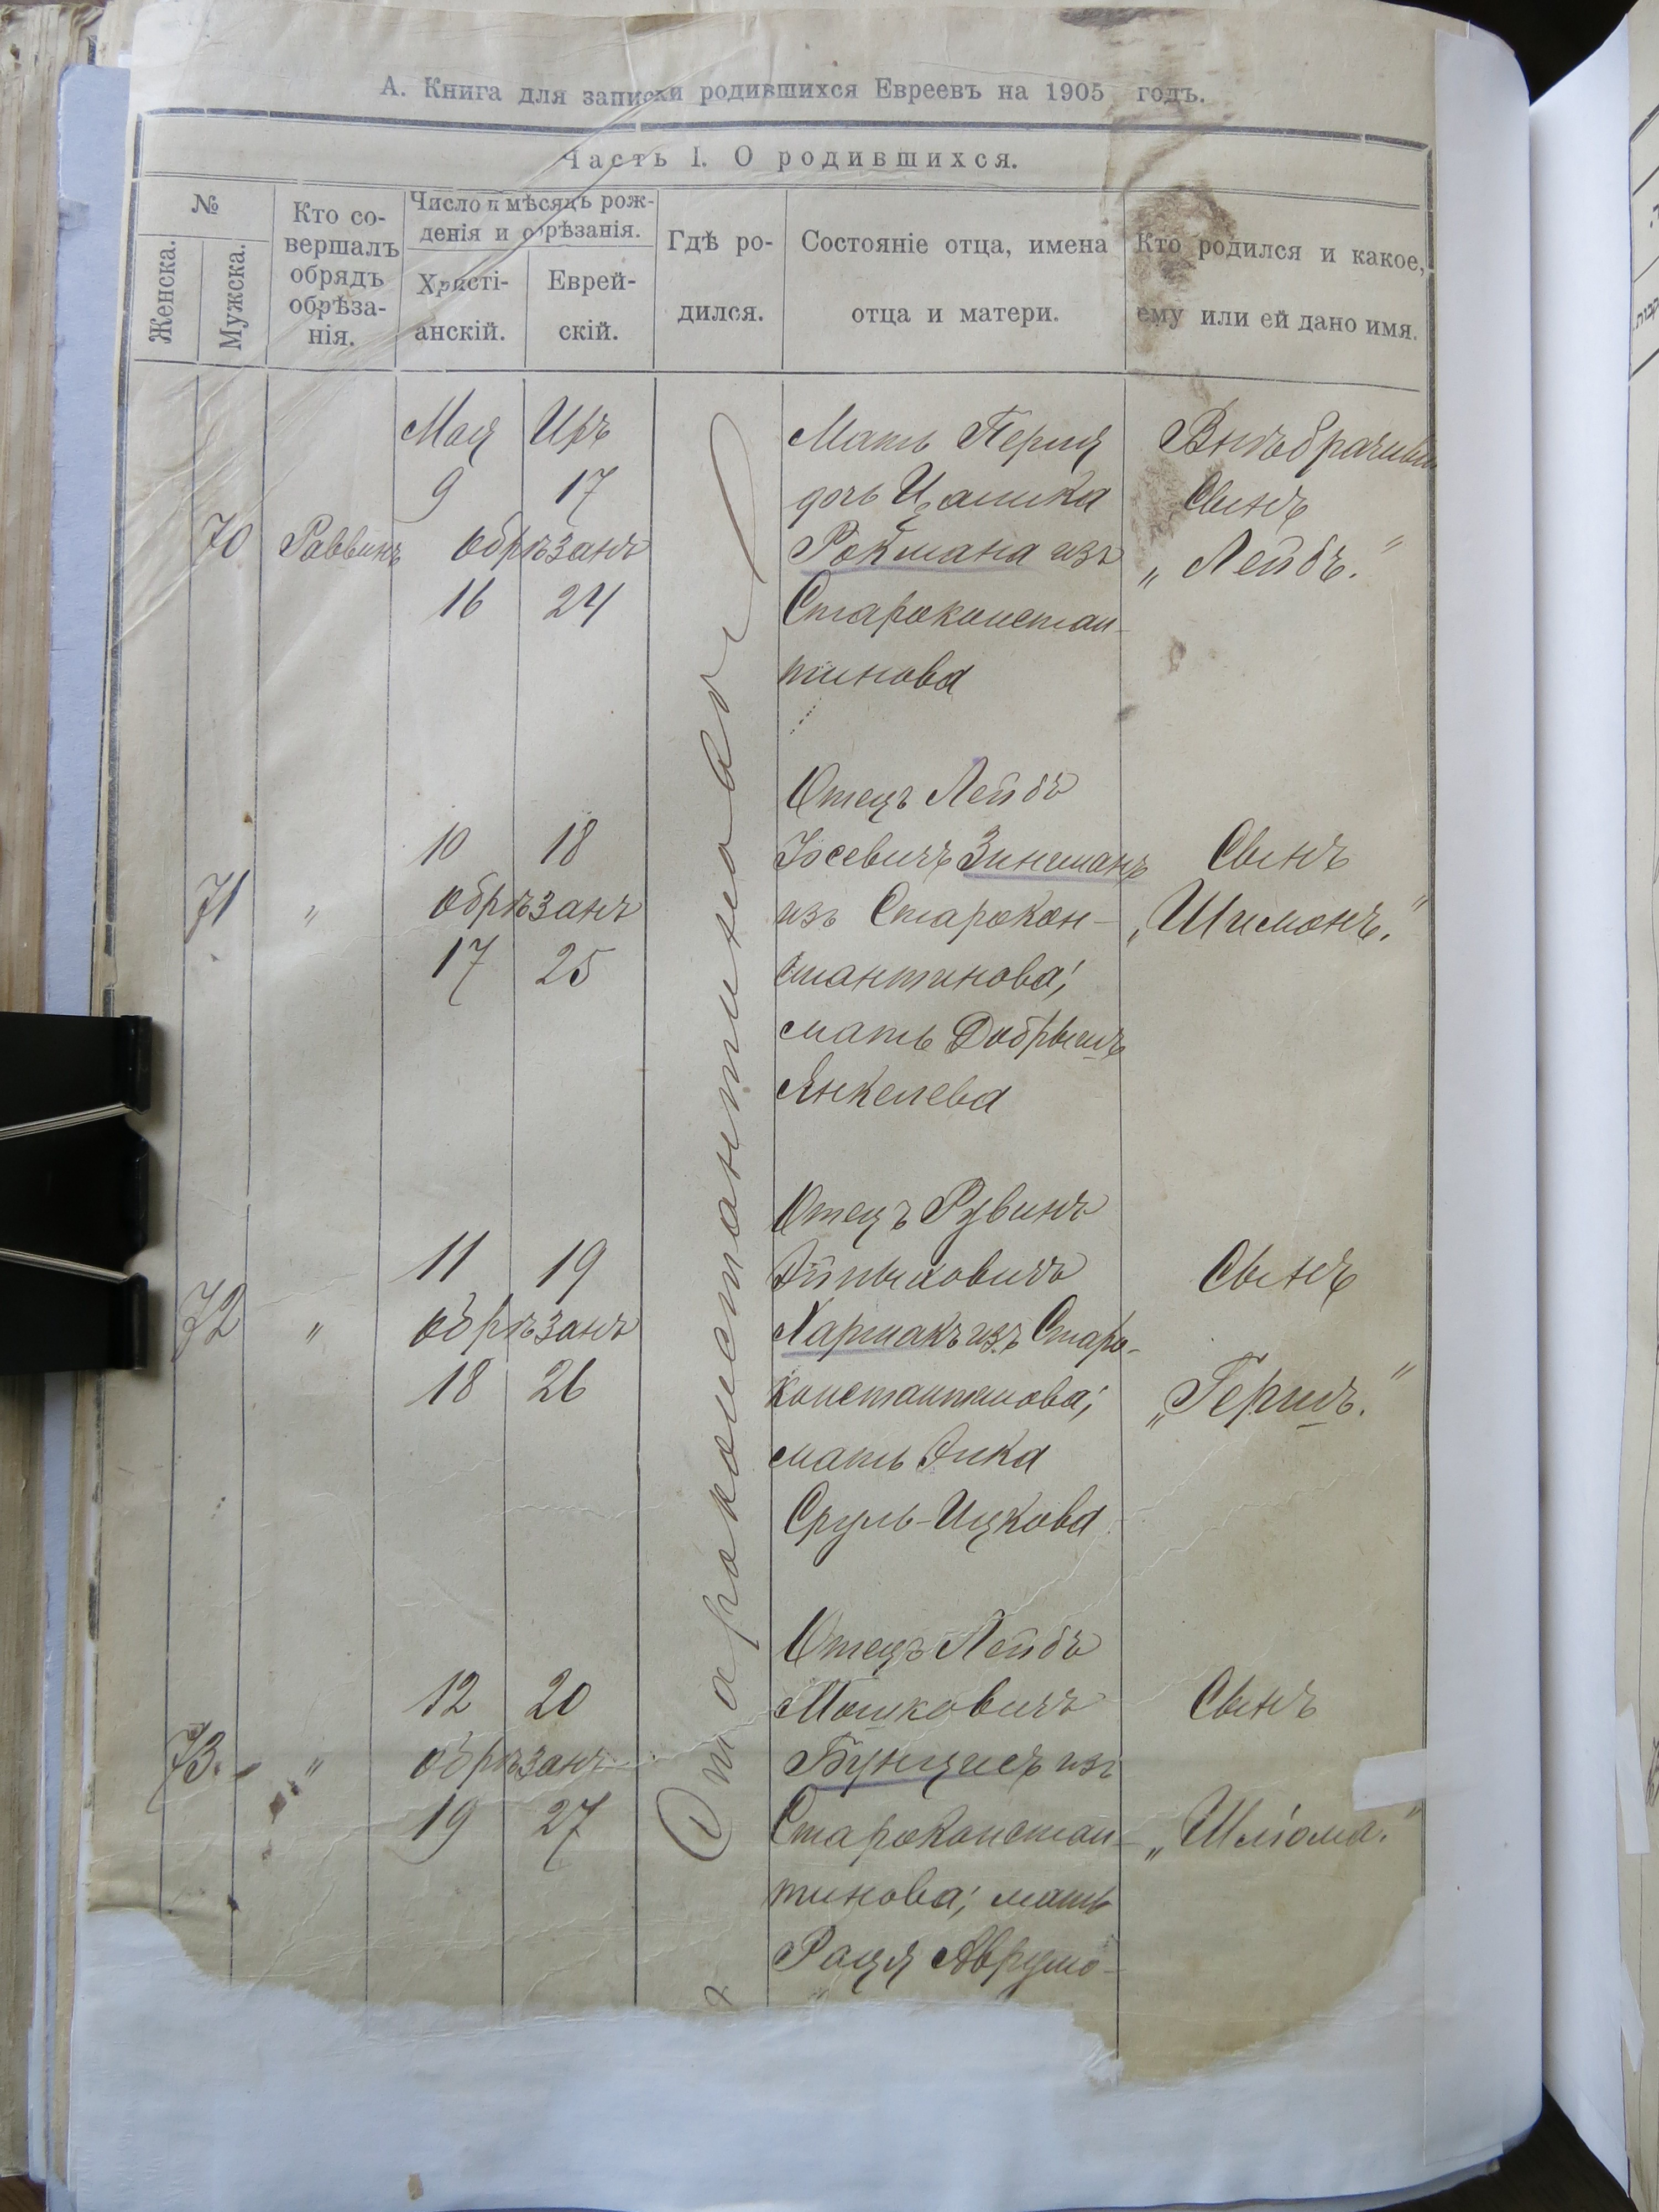 А. Книга для записки родившихся Евреевъ на 1905 годъ.
Часть I. О родившихся.
№
Женска.
Мужска.
Кто со-
вершалъ
обрядъ
обрѣза-
нія.
Число и мѣсяцъ рож-
денія и обрѣзанія.
Христі-
анскій.
Еврей-
скій.
Гдѣ ро-
дился.
Состояніе отца, имена
отца и матери.
Кто родился и какое,
ему или ей дано имя.
Старо константиновѣ
70
Раввинъ
Мая Иръ
9 17
обрѣзанъ
16 24
Мать Перля
дочь Ицаика
Рокмана изъ
Староконстан-
тинова
Внѣбрачный
Сынъ
„Лейбъ."
71
"
10 18
обрѣзанъ
17 25
Отецъ Лейбъ
Іосевичъ Зингманъ
изъ Старокон-
стантинова;
мать Добрышъ
Янкелева
Сынъ
„Шимонъ."
72
"
11 19
обрѣзанъ
18 26
Отецъ Рувинъ
Харmакъ изъ Старо-
константинова;
мать Эика
Сруль-Ицкова
Сынъ
„Гершъ."
73.
"
12 20
обрѣзанъ
19 27
Отецъ Лейбъ
Мошковичъ
Бунцисъ изъ
Староконстан-
тинова; мать
Раця Аврумо-
Сынъ
„Шліома."